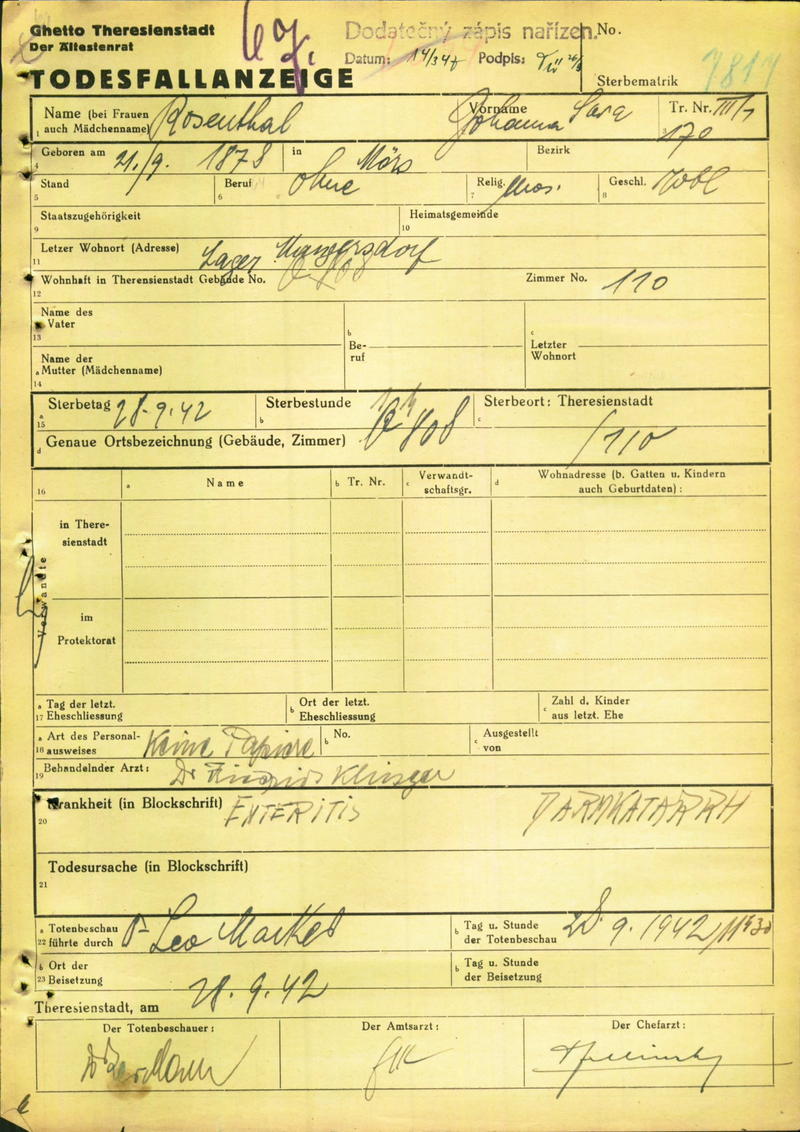 Ghetto Theresienstadt
Der Ältestenrat
Dodatečný zápis nařízen.
No.
Datum: 14/3 47 Podpis:
TODESFALLANZEIGE
Sterbematrik
7817
Name (bei Frauen auch Mädchenname) Rosenthal
Vorname Johanna Sara
Tr. Nr. III/1
1
170
4 Geboren am 21./9. 1878 in Mörs Bezirk
5 Stand
6 Beruf ohne
7 Relig. Mos.
8 Geschl. Wbl
9 Staatszugehörigkeit
10 Heimatsgemeinde
11 Letzer Wohnort (Adresse) Lager
12 Wohnhaft in Theresienstadt Gebäude No. Q 808 Zimmer No. 110
13 Name des Vater
b Beruf
c Letzter Wohnort
14 a Name der Mutter (Mädchenname)
15 a Sterbetag 28.9.42
b Sterbestunde
c Sterbeort: Theresienstadt
d Genaue Ortsbezeichnung (Gebäude, Zimmer) Q 808 /110
16 a Name
b Tr. Nr.
c Verwandtschaftsgr.
d Wohnadresse (b. Gatten u. Kindern auch Geburtdaten) :
Verwandte
in Theresienstadt
im Protektorat
17 a Tag der letzt. Eheschliessung
b Ort der letzt. Eheschliessung
c Zahl d. Kinder aus letzt. Ehe
18 a Art des Personalausweises Keine Papiere
b No.
c Ausgestellt von
19 Behandelnder Arzt: Dr
20 Krankheit (in Blockschrift) ENTERITIS DARMKATARRH
21 Todesursache (in Blockschrift)
22 a Totenbeschau führte durch Dr Leo Markes
b Tag u. Stunde der Totenbeschau 28. 9. 1942 / 11 h 30
23 b Ort der Beisetzung
b Tag u. Stunde der Beisetzung
Theresienstadt, am 28.9.42
Der Totenbeschauer:
Der Amtsarzt :
Der Chefarzt :